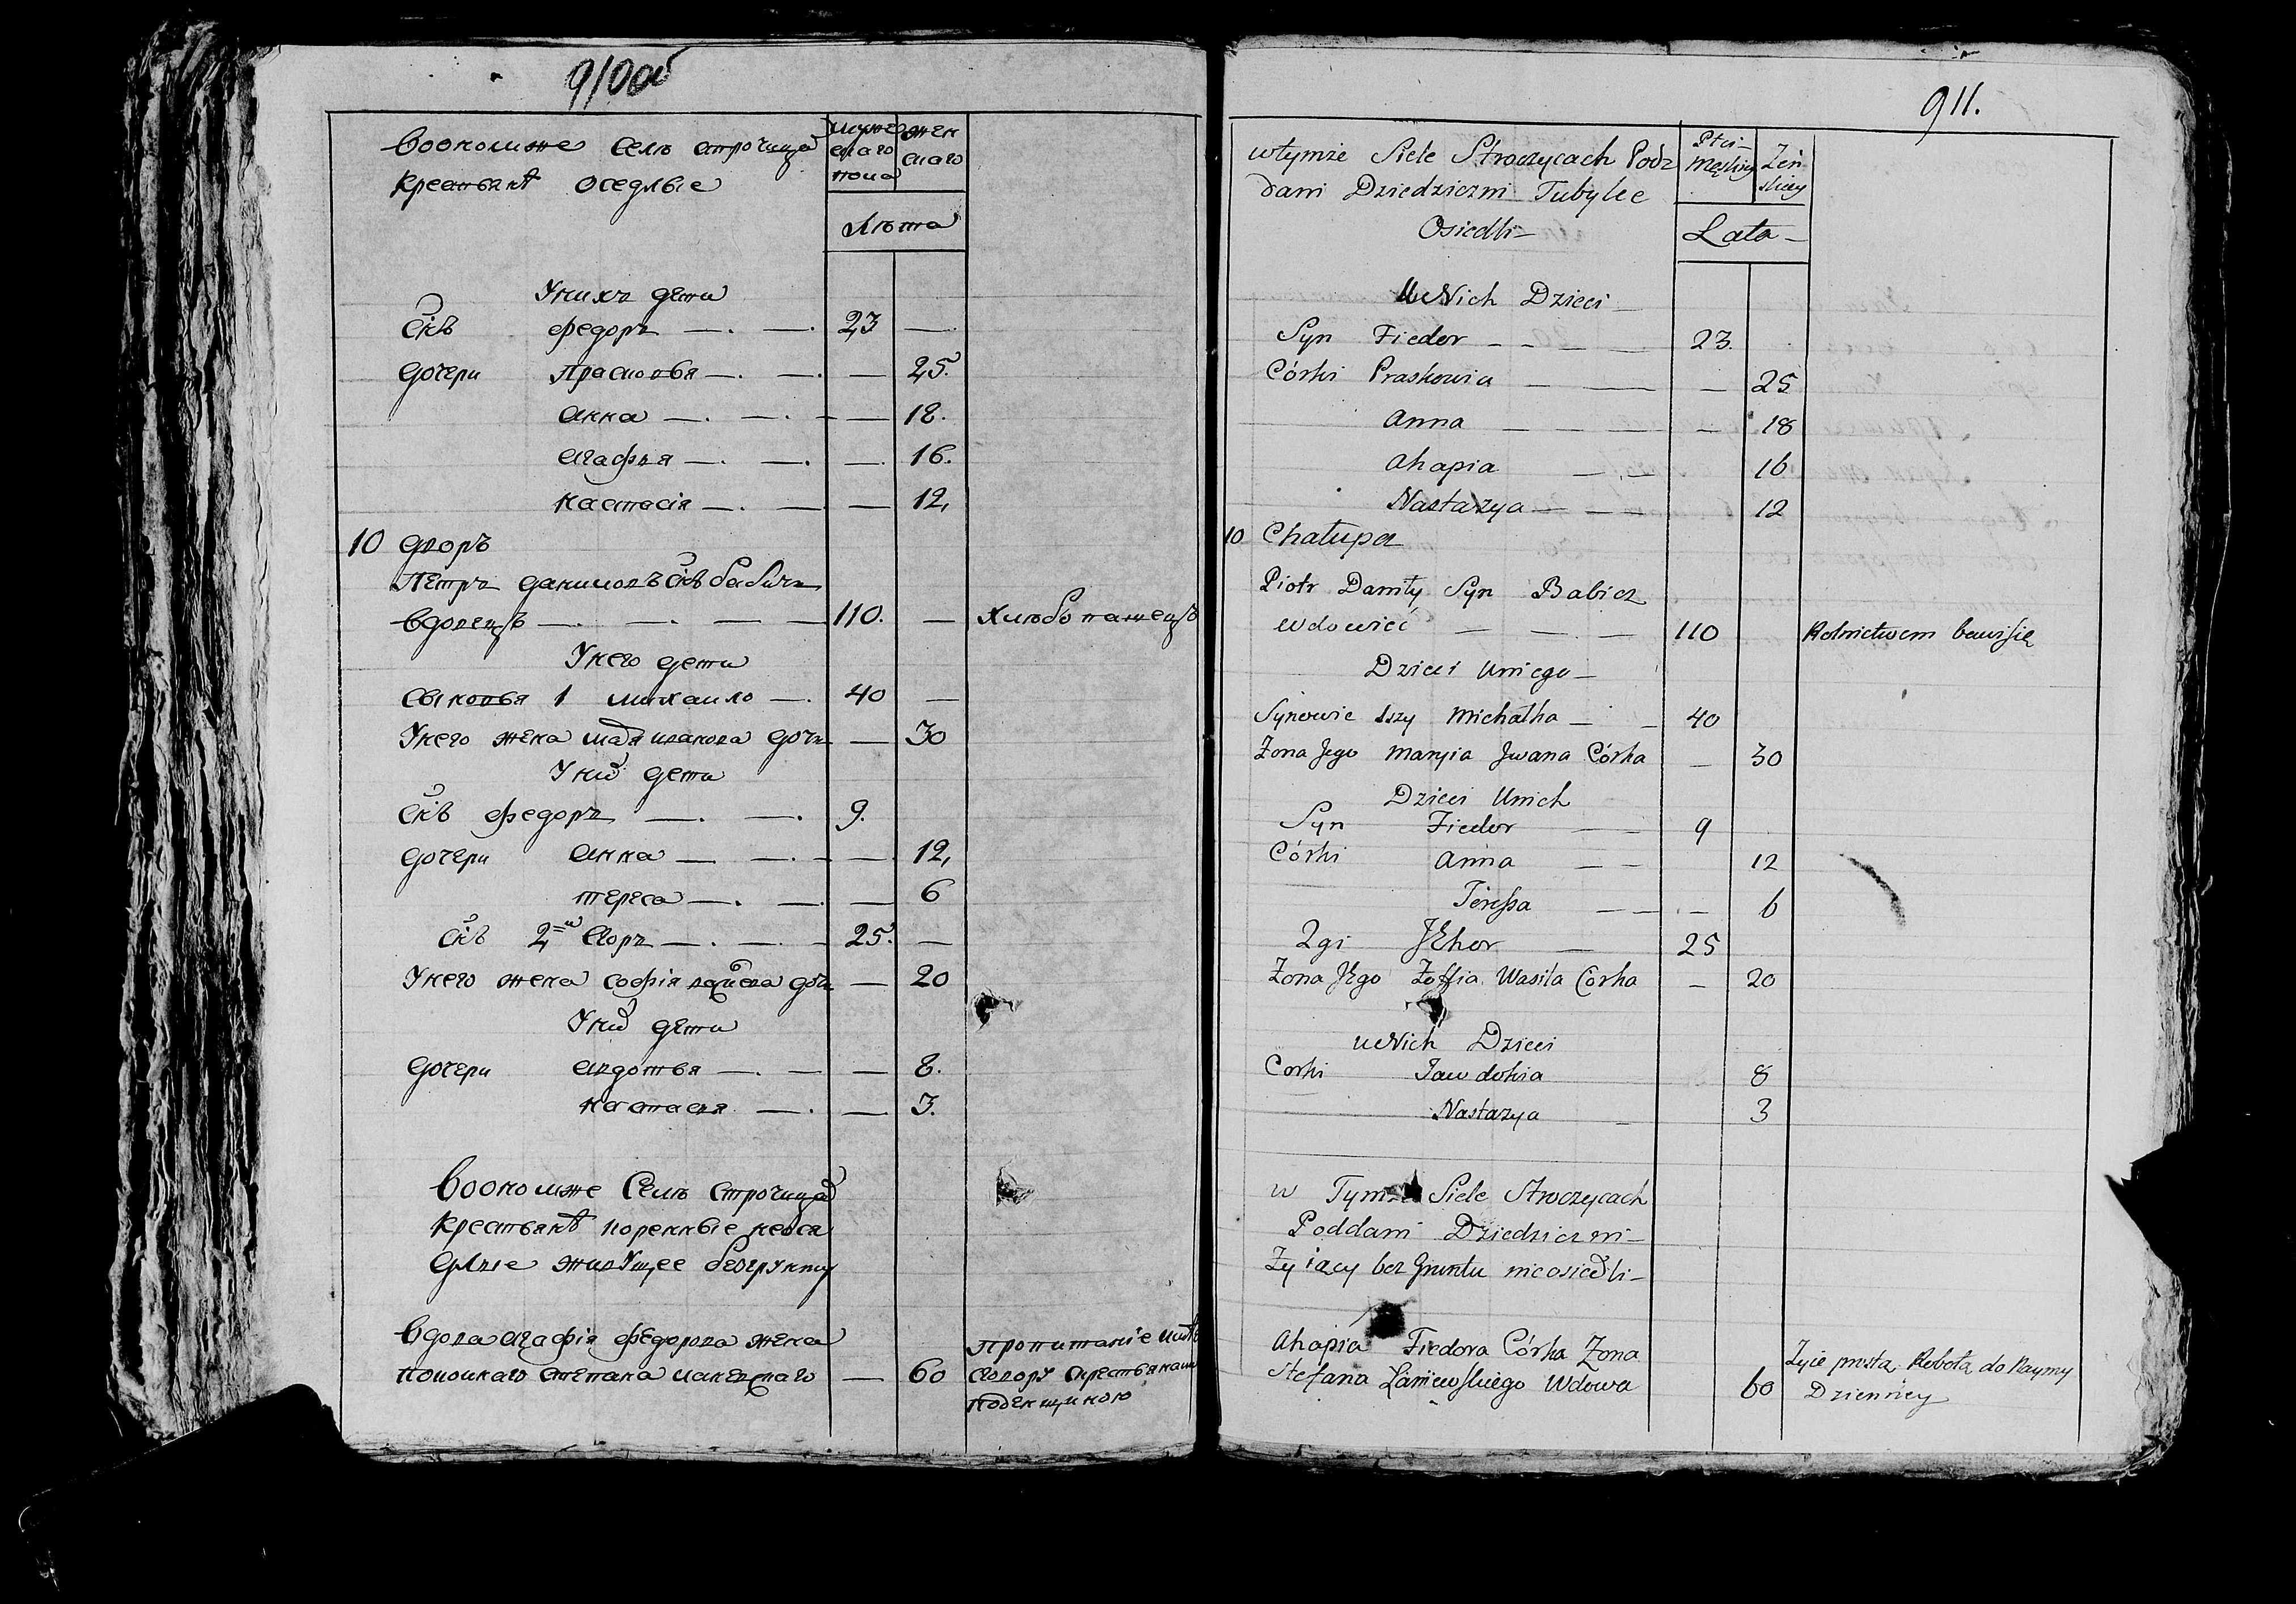 910об
Вооколже селѣ строчицахъ
Крестьянѣ оседлые
мужескаго пола
женскаго
Лѣта
Унихъ дети
Снъ федоръ —. —. 23 —
дочери Прасковья —. —. — 25.
Анна —. —. — 18.
Агафья —. —. — 16.
Настасія —. — — 12,
10 дворъ
Петръ даниловъ Снъ бабичъ
вдовецъ —. —. — — 110. — Хлебопашецъ
Унего дети
Сыновья 1 Михаило —. 40 —
Унего жена Марья иванова дочь — 30
Уних дети
Снъ федоръ —. —. 9.
дочери Анна — —. — 12,
тереса —. — — 6
Снъ 2й Егоръ —. —. 25. —
Унего жена Софія василева дочь — 20
Уних дети
дочери Авдотья —. — — 8.
Настасья —. — 3.
Вооколже Селѣ строчицахъ
Крестьянѣ коренные неосе
длые живущее безгрунту
Вдова агафія федорова жена
покойнаго Степана ланевскаго — 60
пропитаніе имѣ
поденщикою
911.
wtymże Siele Stroczycach Podz
dani Dziedziczni Tubylce
Osiedli—
Płci—
Męskiey
Żeń
skiey
Lata—
U Nich Dzieci—
Syn Fiedor — — — — 23.
Córki Praskowia — — — 25
Anna — — — — — 18
Ahapia — — 16
Nastazya — — — 12
10 Chałupa
Piotr Daniły Syn Babicz
wdowieć — — — 110 Rolnictwem bawi się
Dzieci Uniego—
Synowie 1szy Michałka — — 40
Żona Jego Maryia Jwana Córka — 30
Dzieci Unich
Syn Fiedor — — 9
Córki Anna — — 12
Teressa — — — 6
2gi JEhor — 25
Żona JEgo Zoffia Wasila Corka — 20
u Nich Dzieci
Corki Jawdokia 8
Nastazya 3
w Tymże Siele Stroczycach
Poddani Dziedziczni—
Żyiący bez Gruntu nieosiedli—
Ahapia Fiedora Córka Żona
Stefana Łaniewskiego Wdowa 60
Żyie prosta Robotą do Naymy
Dzienney